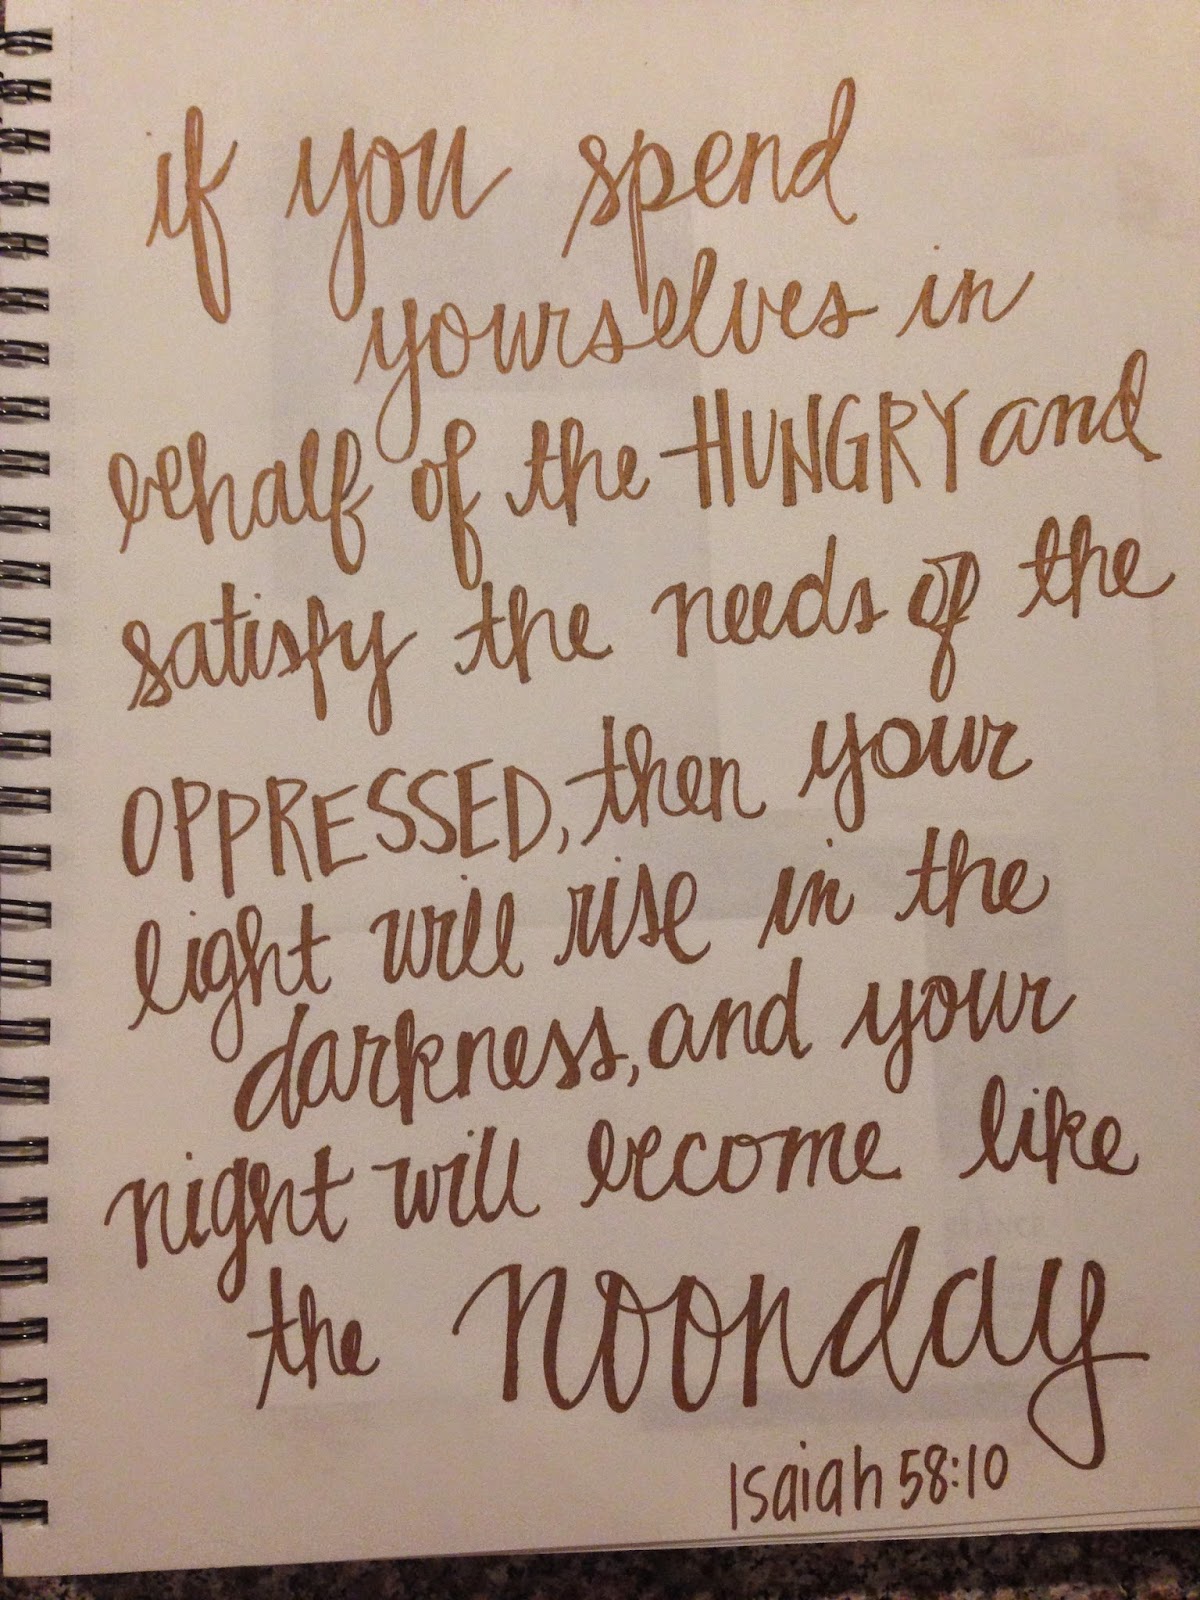 if you spend
yourselves in
behalf of the HUNGRY and
satisfy the needs of the
OPPRESSED, then your
light will rise in the
darkness, and your
night will become like
the noonday
Isaiah 58:10